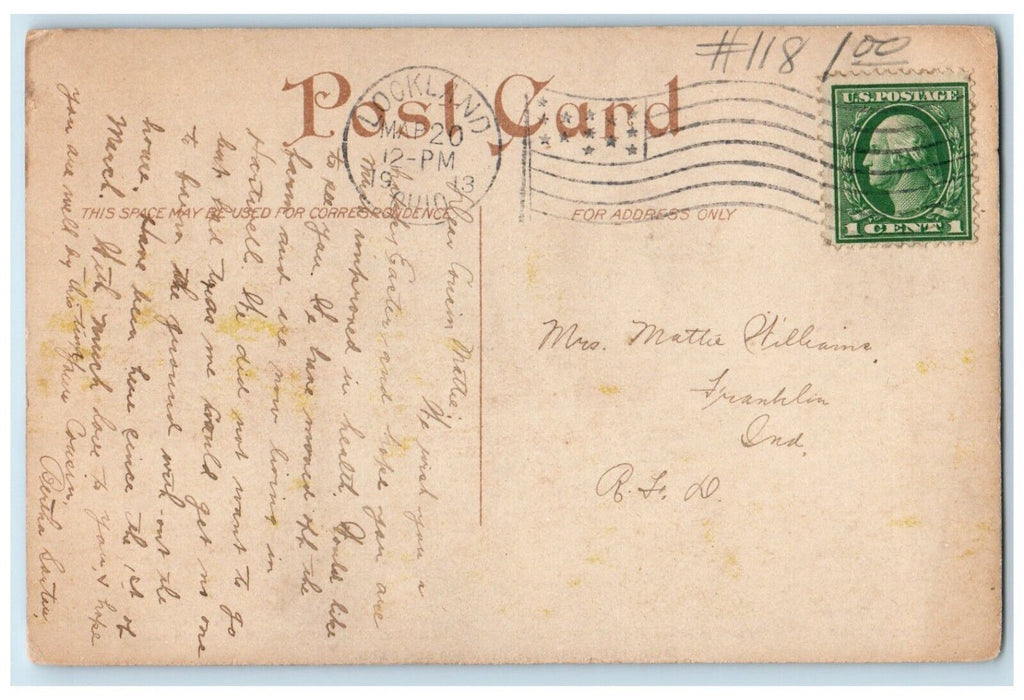 #118 1.00
Post Card
LOCKLAND
MAR 20
12-PM
1913
OHIO
U.S. POSTAGE
1 CENT 1
THIS SPACE MAY BE USED FOR CORRESPONDENCE
FOR ADDRESS ONLY
Dear Cousin Mattie,
We wish you a
Easter, and hope you are
much improved in health. Would like
to see you. We have moved off the
farm and are now living in
Hartwell. We did not want to go
but Dad was me could get no one
to farm the ground with-out the
house. Have been here since the 1st of
March. With much love to you, & hope
you are well by this time, Your Cousin,
Bertha
Mrs. Mattie Williams,
Franklin
Ind,
R. F. D.